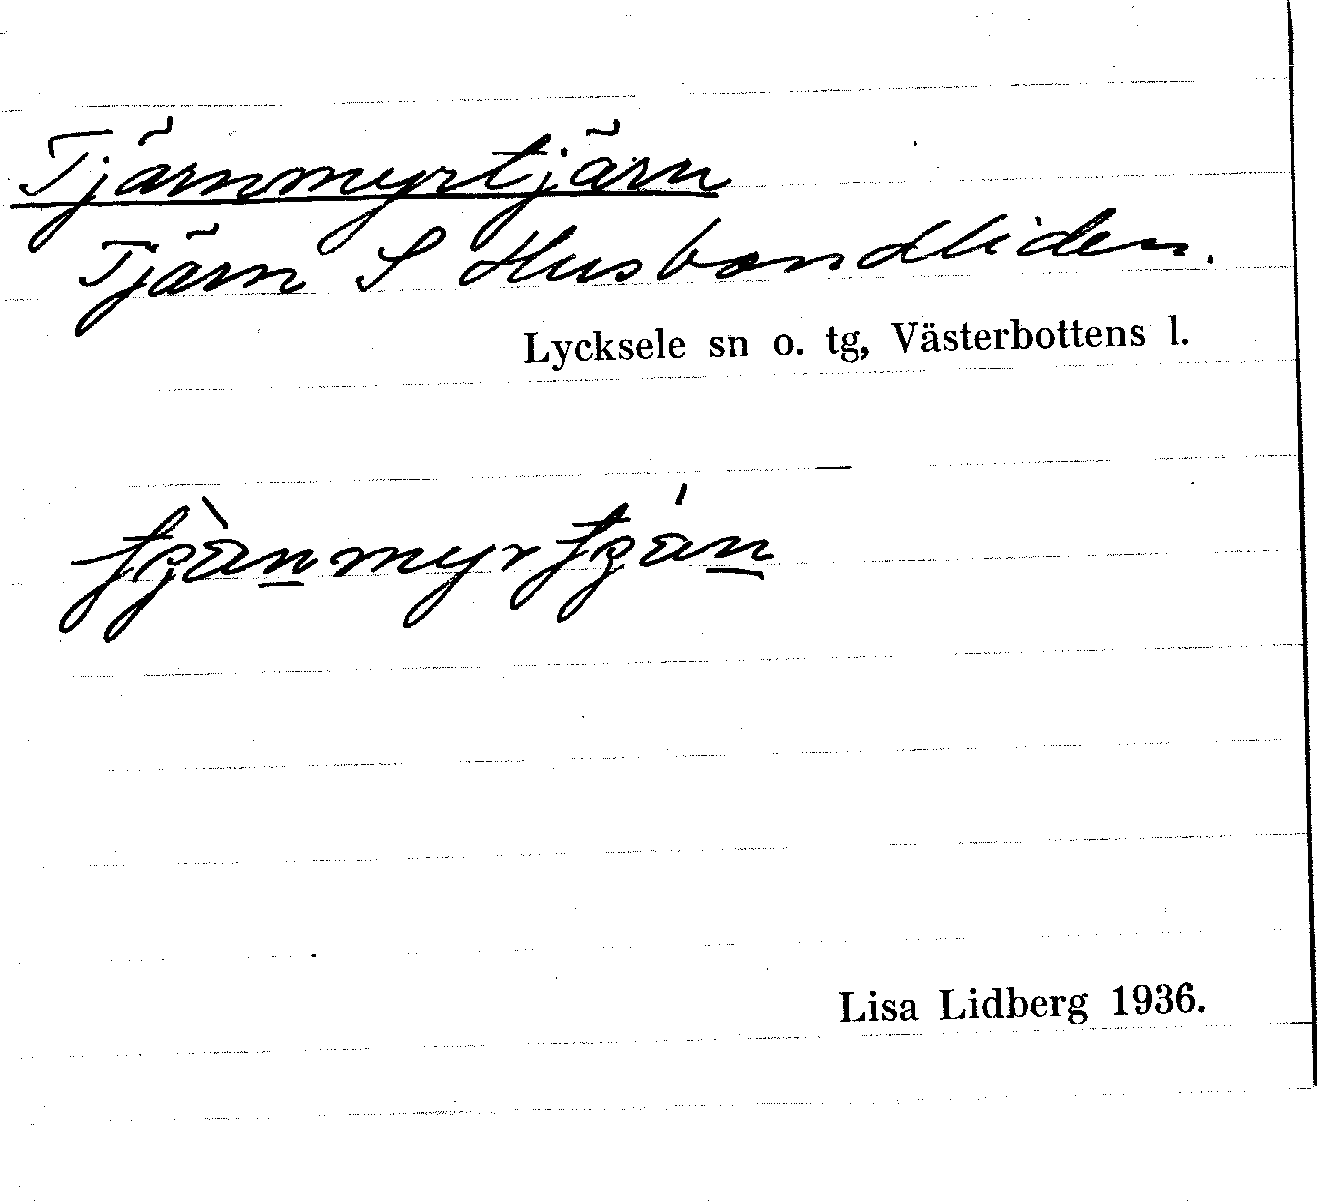 Tjärnmyrtjärn
Tjärn S Husbondliden.
Lycksele sn o. tg, Västerbottens l.
Lisa Lidberg 1936.